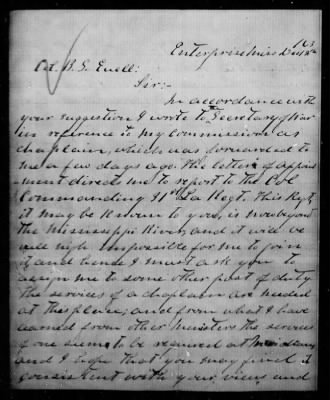 Enterprise Miss Dec 18th
Col. B. S. Ewell:
Sir:-
In accordance with
your suggestion I wrote to Secretary of War
in reference to my commission as
chaplain, which was forwarded to
me a few days ago. This letter of appoint
ment directs me to report to the Col
Commanding 31st La Regt. This Regt,
it may be known to you, is now beyond
the Mississippi River, and it will be
well nigh impossible for me to join
it and hence I must ask you to
assign me to some other post of duty
the services of a chaplain are needed
at this place; and from what I have
learned from other ministers the services
of one seems to be required at Meridian
and I hope that you may find it
consistent with your views and